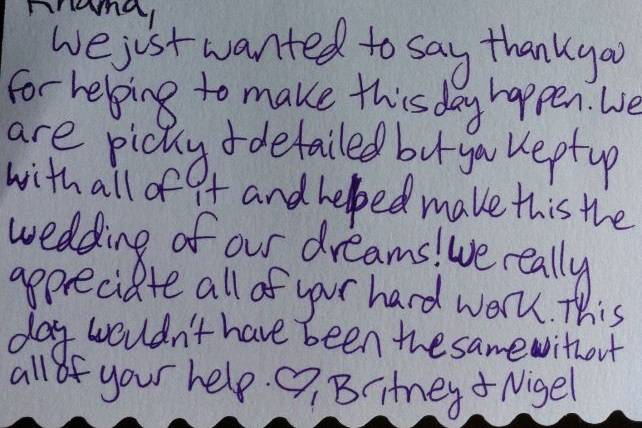 We just wanted to say thank you
for helping to make this day happen. We
are picky & detailed but you kept up
with all of it and helped make this the
wedding of our dreams! We really
appreciate all of your hard work. This
day wouldn't have been the same without
all of your help. ♡, Britney & Nigel